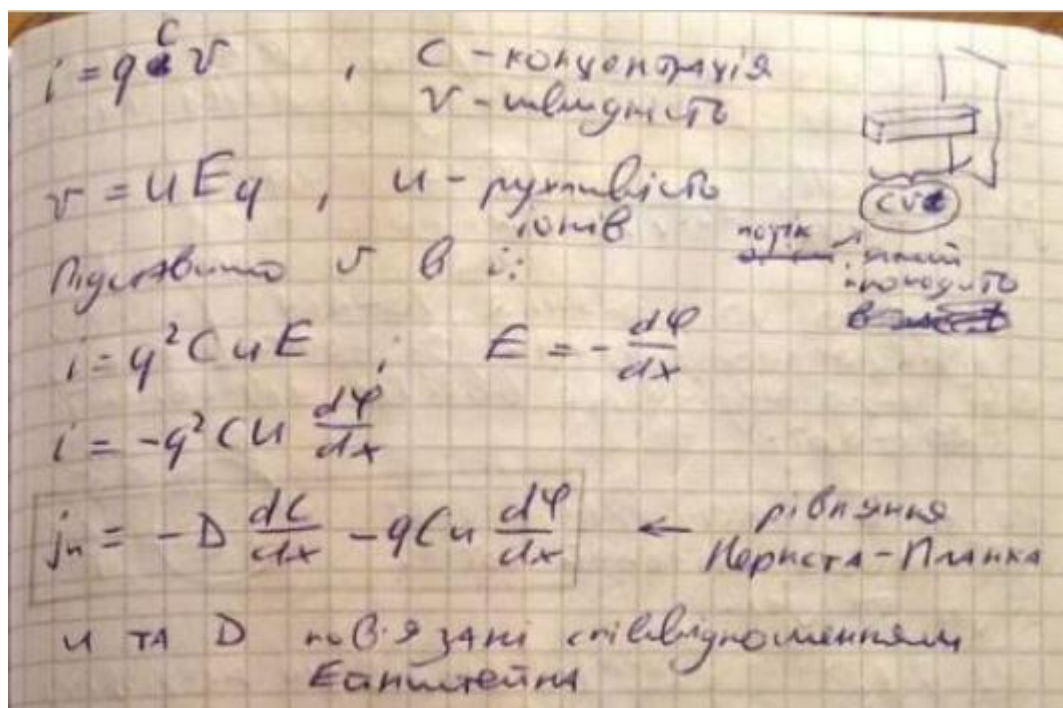 i = qCv , C - концентрація
v - швидкість
v = uEq , u - рухливість
іонів
Підставимо v в i:
i = q²CuE ; E = - dφ/dx
i = -q²Cu dφ/dx
jn = -D dC/dx - qCu dφ/dx ← рівняння
Нернста-Планка
u та D пов'язані співвідношенням
Ейнштейна
потік
проходить